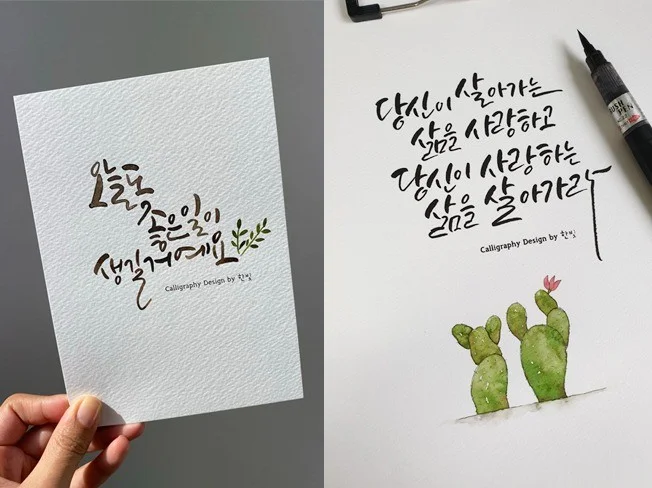 오늘도
좋은일이
생길거예요
Calligraphy Design by 한빛
당신이 살아가는
삶을 사랑하고
당신이 사랑하는
삶을 살아가라
Calligraphy Design by 한빛